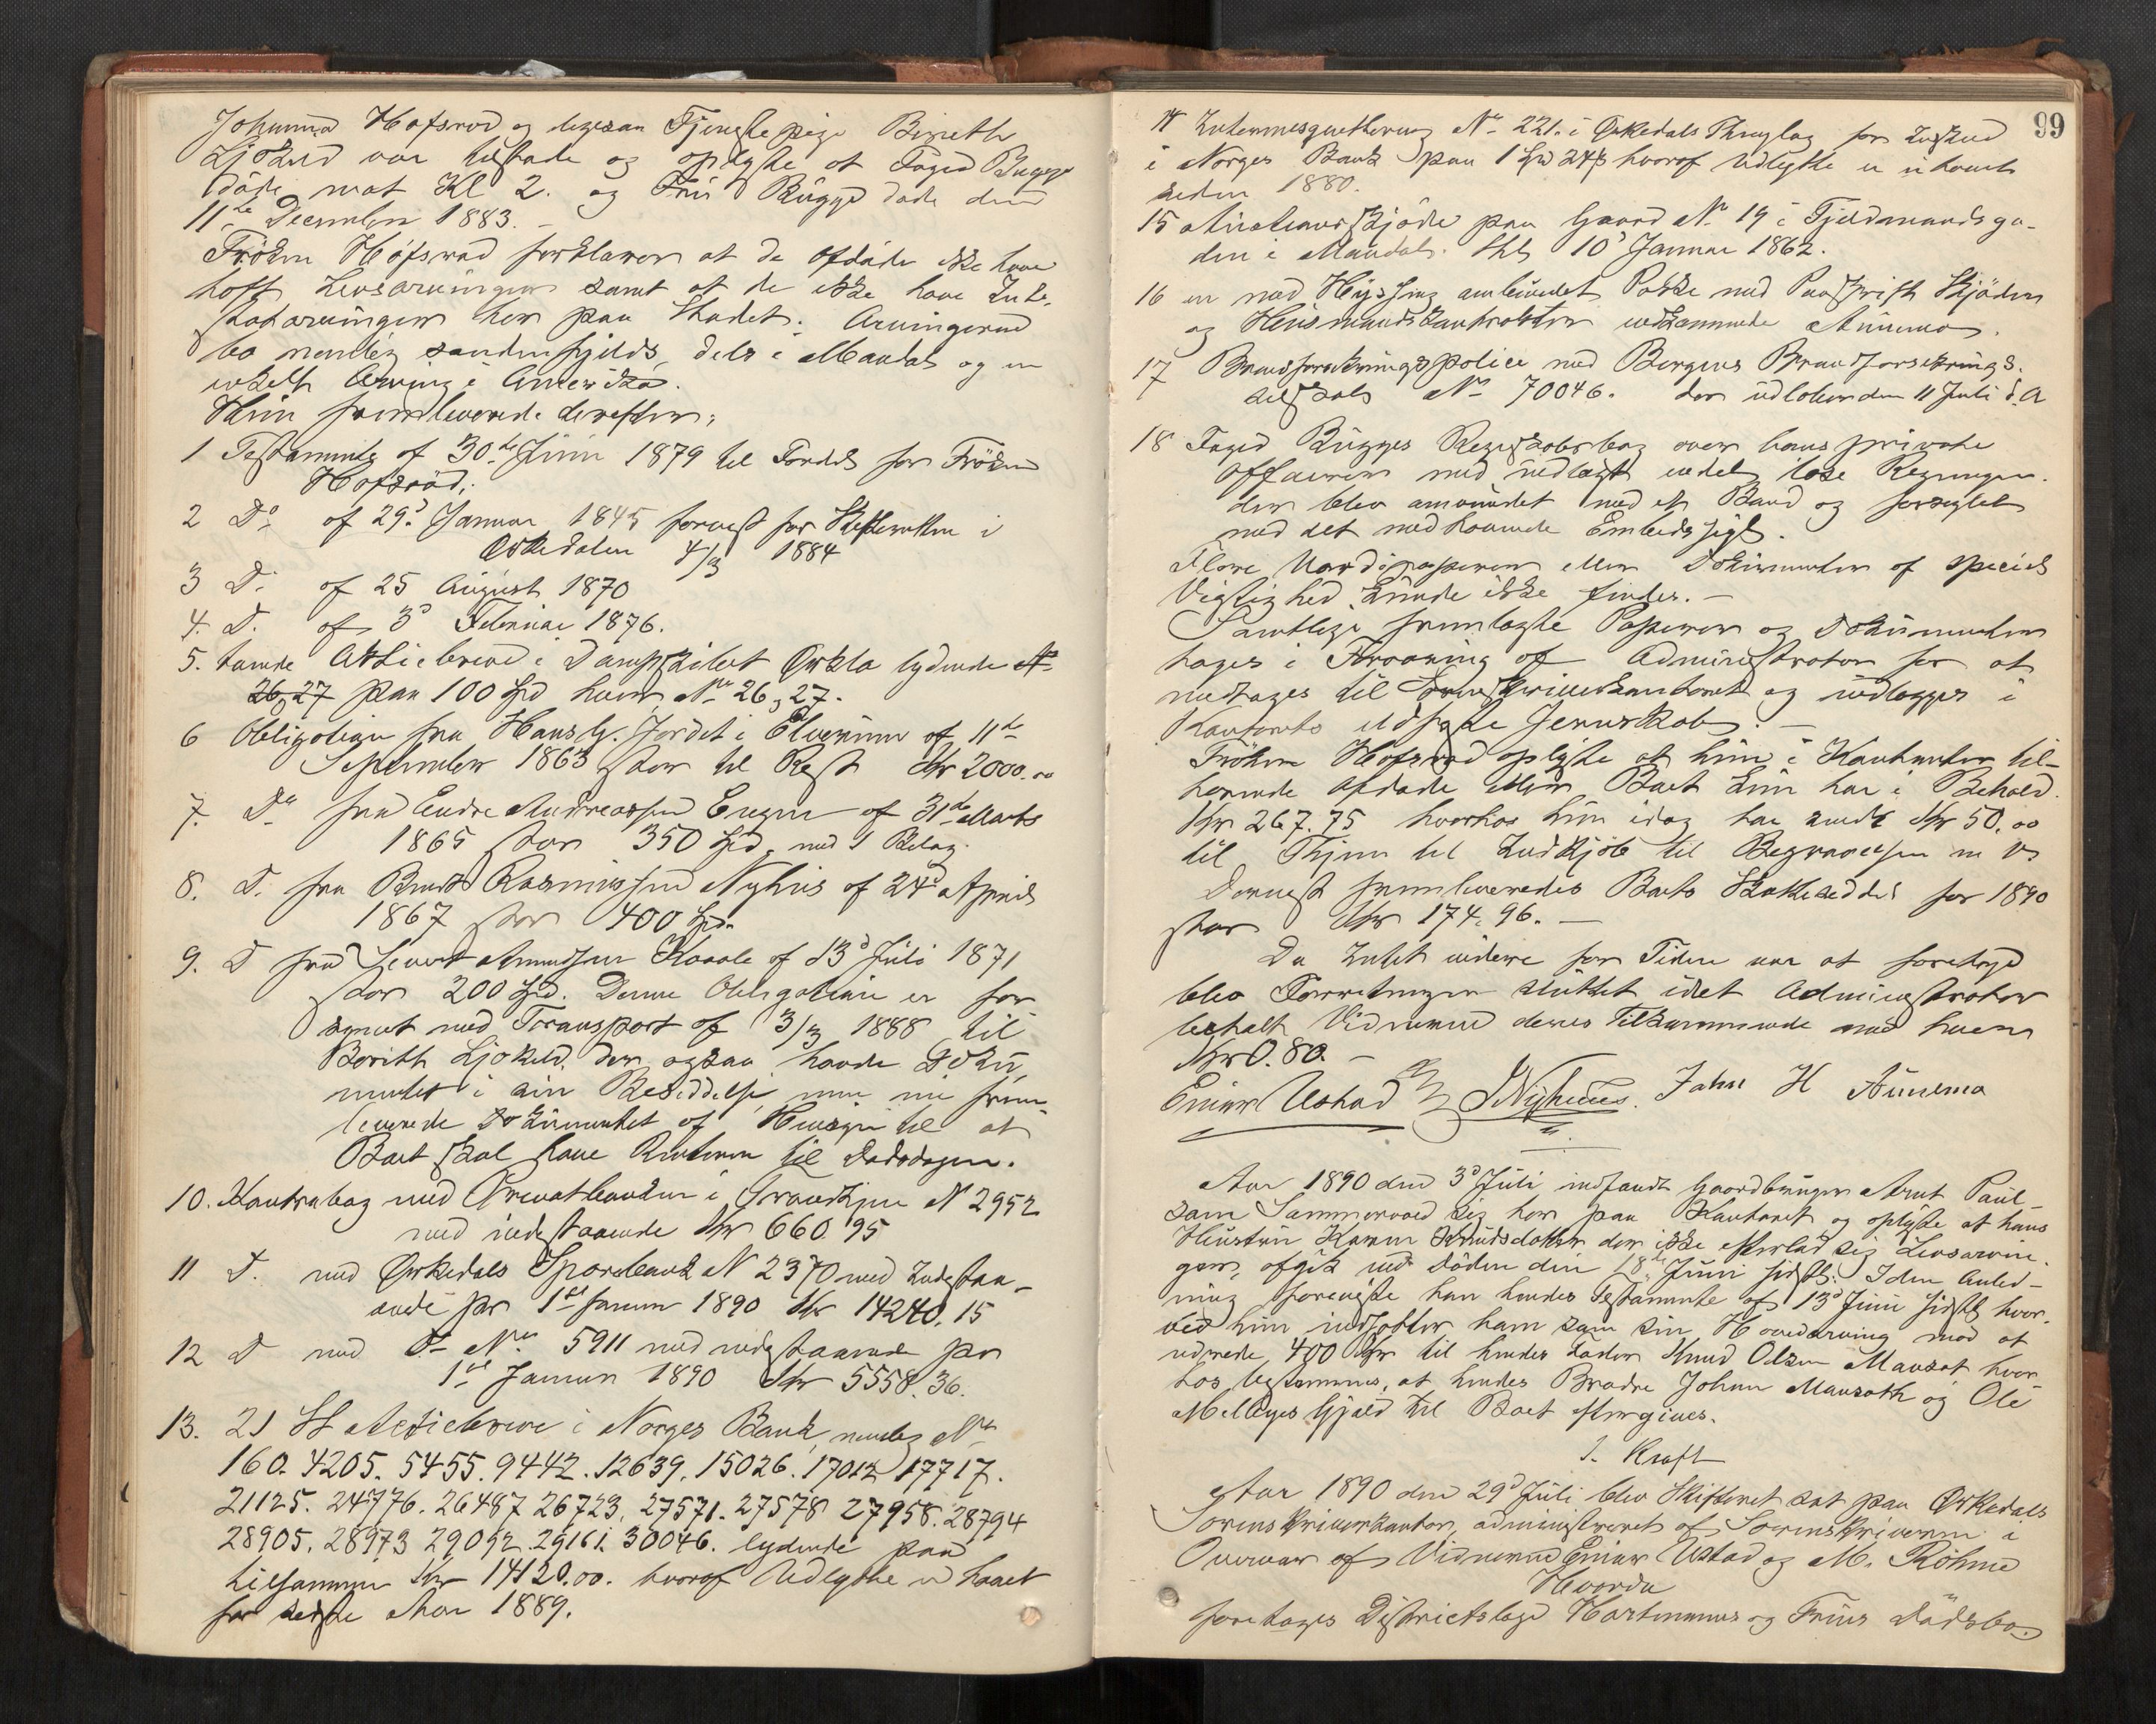 Johanna Hofsrød og ligesaa Tjenestepige Bereth
Ljøkeld var tilstede og oplyste at Foged Bugge
døde nat Kl 2. og Fru Bugge døde den
11te December 1883.
Frøken Hofsrød forklarer at de Afdøde ikke have
havt Livsarvinger samt at de ikke have Inte-
statarvinger her paa Stedet. Arvingerne
bo nemlig søndenfjelds, dels i Mandal og en
enkelt Arving i Amerika.
Hun fremleverede derefter;
1 Testamente af 30te Juni 1879 til Fordel for Frøken
Hofsrød;
2 Do af 29d Januar 1845 forevist for Skifteretten i
Ørkedalen 4/3 1884
3 D. af 25 August 1870
4. D. af 3d Februar 1876.
5. tvende Actiebreve i Dampskibet Orkla lydende
26, 27 paa 100 Spd hvert, No 26, 27.
6 Obligation fra Hans G. Jordet i Elverum af 11te
September 1863 stor til Rest Kr 2000.00
7. Do fra Endre Andreassen af 31te Marts
1865 stor 350 Spd. med 1 Bilag.
8. D. fra Berndt Rasmussen Nyhus af 24d April
1867 stor 400 Spd.
9. D fra Sivert Amundsen af 13d Juli 1871
stor 200 Spd. Denne Obligation er for-
synet med Transport af 3/3 1888 til
Berith Ljøkeld, der ogsaa havde Doku-
mentet i sin Besiddelse, men nu frem-
leverede Dokumentet af Hensyn til at
Boet skal have Renterne til Dødsdagen.
10. Kontrabog med Privatbanken i Trondhjem N 2952
med indestaaende Kr 660.95
11 D. med Ørkedals Sparebank N 2370 med Indestaa-
ende pr 1ste Januar 1890 Kr 14240.15
12 D med Do No 5911 med indestaaende pr
1ste Januar 1890 Kr 5558.36.
13. 21 St Actiebreve i Norges Bank, nemlig No
160. 4205. 5455. 9442. 12639. 15026. 17012 17717.
21125. 24776. 26487 26723. 27571. 27578 27958. 28794
28905. 28973 29092. 29161. 30046. lydende paa
tilsammen Kr 14120.00. hvoraf Udbytte er hævet
for sidste Aar 1889.
99
14 Interimsqvittering No 221. i Ørkedals Thinglag for Indskud
i Norges Bank paa 1 Spd 24 ß hvoraf Udbytte er uhævet
siden 1880.
15 Auctionsskjøde paa Gaard No 19 i Fjeldmandsga-
den i Mandal. thl 10d Januar 1862.
16 en med Hyssing ombundet Pakke med Paaskrift Skjøder
og Husmandskontrakter vedkommende Aunemo.
17 Brandforsikringspolice med Bergens Brandforsikrings-
selskab No 70046. der udløber den 11 Juli d. A
18 Foged Bugges Regnskabsbog over hans private
Affærer med indlagt endel løse Regninger.
der blev omvundet med et Baand og forseglet
med det medhavende Embedssigl.
Flere Værdipapirer eller Dokumenter af speciel
Vigtighed kunde ikke findes.
Samtlige fremlagte Papirer og Dokumenter
toges i Forvaring af Administrator for at
medtages til Sorenskriverkontoret og indlægges i
Kontorets ildfaste Jernskab.
Frøken Hofsrød oplyste at hun i Kontanter til-
hørende Afdøde eller Boet kun har i Behold
Kr 267.75 hvorhos hun idag har sendt Kr 50.00
til Thjem til Indkjøb til Begravelsen m V.
Dernæst fremleveredes Boets Skatteseddel for 1890
stor Kr 174.96.
Da Intet videre for Tiden var at foretage
blev Forretningen sluttet idet Administrator
betalte Vidnerne deres Tilkommende med hver
Kr 0.80.
Einar Ustad J Nyhuus. Johs H Aunemo
Aar 1890 den 3d Juli indfandt Gaardbruger Arnt Paul-
sen Sommervold sig her paa Kontoret og oplyste at hans
Hustru Karen Knudsdatter der ikke efterlod sig Livsarvin-
ger, afgik ved Døden den 18de Juni sidstl. I den Anled-
ning foreviste han hendes Testamente af 13d Juni sidstl hvor-
ved hun indsætter ham som sin Hovedarving mod at
udrede 400 Kr til hendes Fader Knud Olsen Mansæt hvor-
hos bestemmes, at hendes Brødre Johan Mansæth og Ole
Melbyes Gjæld til Boet eftergives.
I. Kraft
Aar 1890 den 29d Juli blev Skifteret sat paa Ørkedals
Sorenskriverkontor, administreret af Sorenskriveren i
Overvær af Vidnerne Einar Ustad og M. Röhme
Hvorda
foretages Districtslæge Hartmanns og Frues Dødsbo.